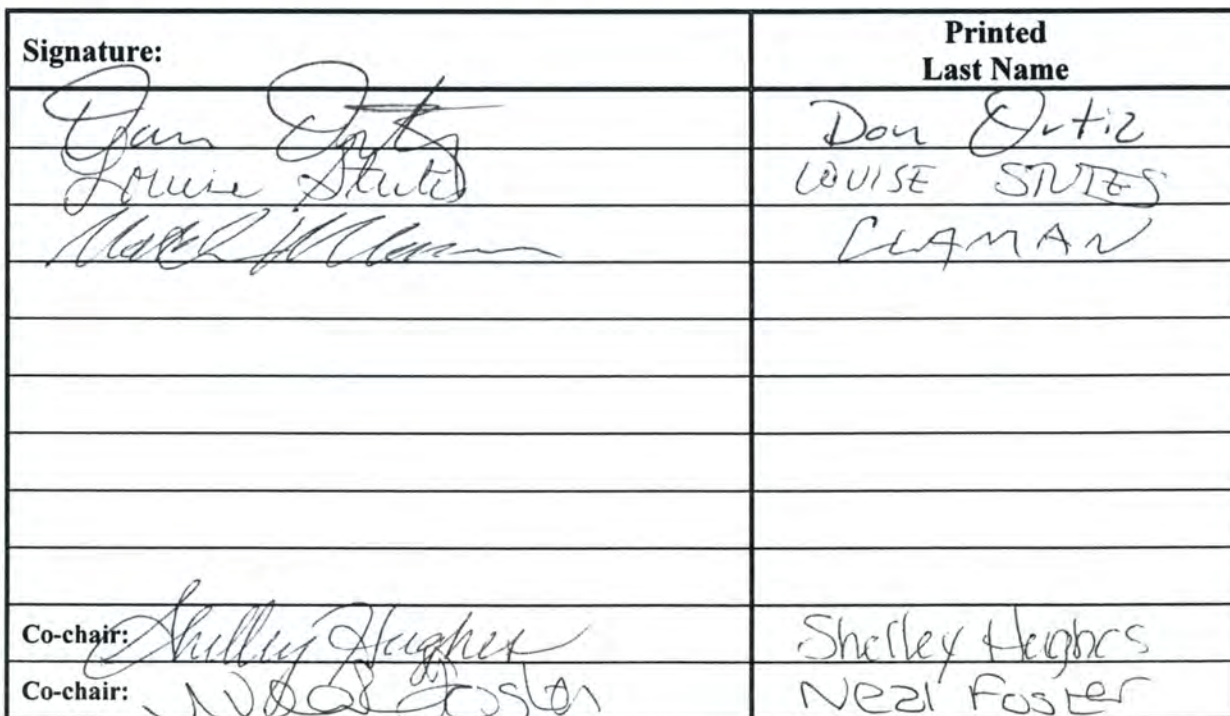 Signature: Printed Last Name
Dan Ortiz Dan Ortiz
Louise Stutes LOUISE STUTES
CLAMAN
Co-chair: Shelley Hughes Shelley Hughes
Co-chair: Neal Foster Neal Foster